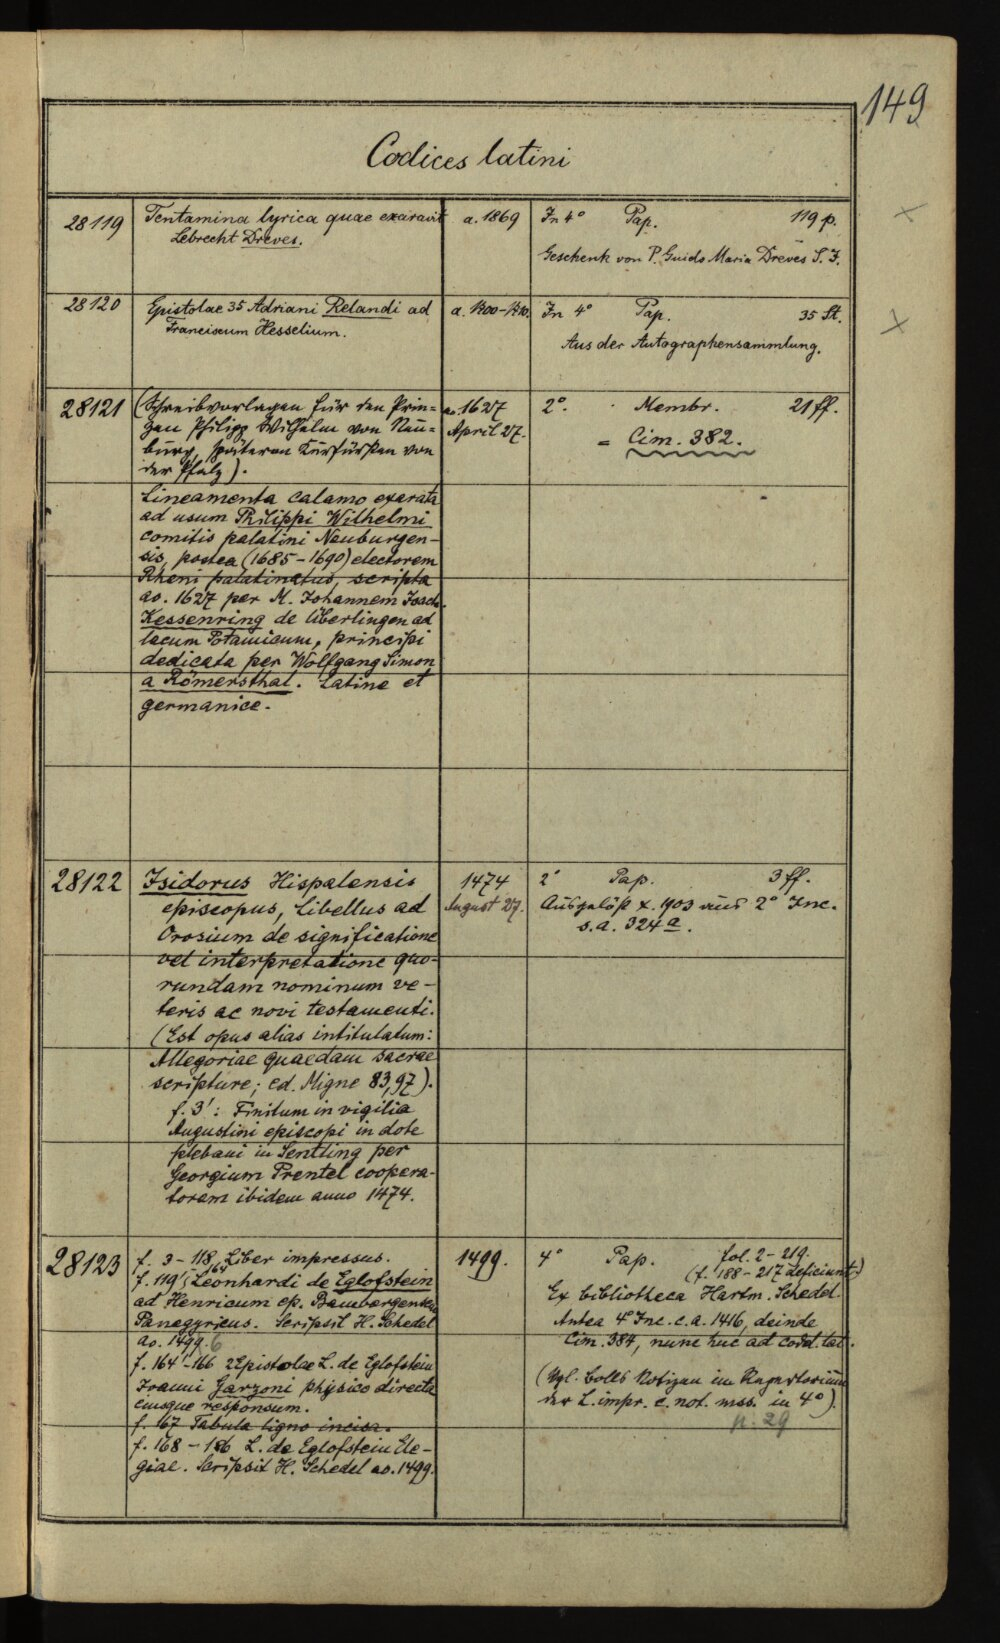 149
Codices latini
28119
Tentamina lyrica quae exaravit
Lebrecht Dreves.
a. 1869
In 4° Pap. 119 p.
Geschenk von P. Guido Maria Dreves S. J.
28120
Epistolae 35 Adriani Relandi ad
Franciscum Hesselium.
a. 1700-1710.
In 4° Pap. 35 St.
Aus der Autographensammlung.
28121
(Schreibvorlagen für den Prin=
zen Philipp Wilhelm von Neu=
burg, späteren Kurfürsten von
der Pfalz).
Lineamenta calamo exarata
ad usum Philippi Wilhelmi
comitis palatini Neuburgen-
sis, postea (1685-1690) electorem
Rheni palatinatus, scripta
ao. 1627 per M. Johannem Joach.
Kessenring de Überlingen ad
lacum Potamicum, principi
dedicata per Wolfgang Simon
a Römersthal. Latine et
germanice.
ao. 1627
April 27.
2°. Membr. 21 ff.
= Cim. 382.
28122
Isidorus Hispalensis
episcopus, Libellus ad
Orosium de significatione
vel interpretatione quo-
rundam nominum ve-
teris ac novi testamenti.
(Est opus alias intitulatum:
Allegoriae quaedam sacrae
scripture; ed. Migne 83,97).
f. 3': Finitum in vigilia
Augustini episcopi in dote
plebani in Sentling per
Georgium Prentel coopera-
torem ibidem anno 1474.
1474
August 27.
2° Pap. 3 ff.
Ausgelöst X. 1903 aus 2° Inc.
s.a. 324a.
28123
f. 3-118 Liber impressus.
f. 119'-164 Leonhardi de Eglofstein
ad Henricum ep. Bambergensem
Panegyricus. Scripsit H. Schedel
ao. 1499. 6
f. 164'-166 2 Epistolae L. de Eglofstein
Joanni Garzoni physico directa
eiusque responsum.
f. 167 Tabula ligno incisa.
f. 168-186 L. de Eglofstein Ele-
giae. Scripsit H. Schedel ao. 1499.
1499.
4° Pap. fol. 2-219.
(f. 188-217 deficiunt.)
Ex bibliotheca Hartm. Schedel.
Antea 4° Inc. c. a. 1416, deinde
Cim. 384, nunc huc ad codd. lat.
(Vgl. Bolls Notizen im Repertorium
der L. impr. c. not. mss. in 4°).
p. 29